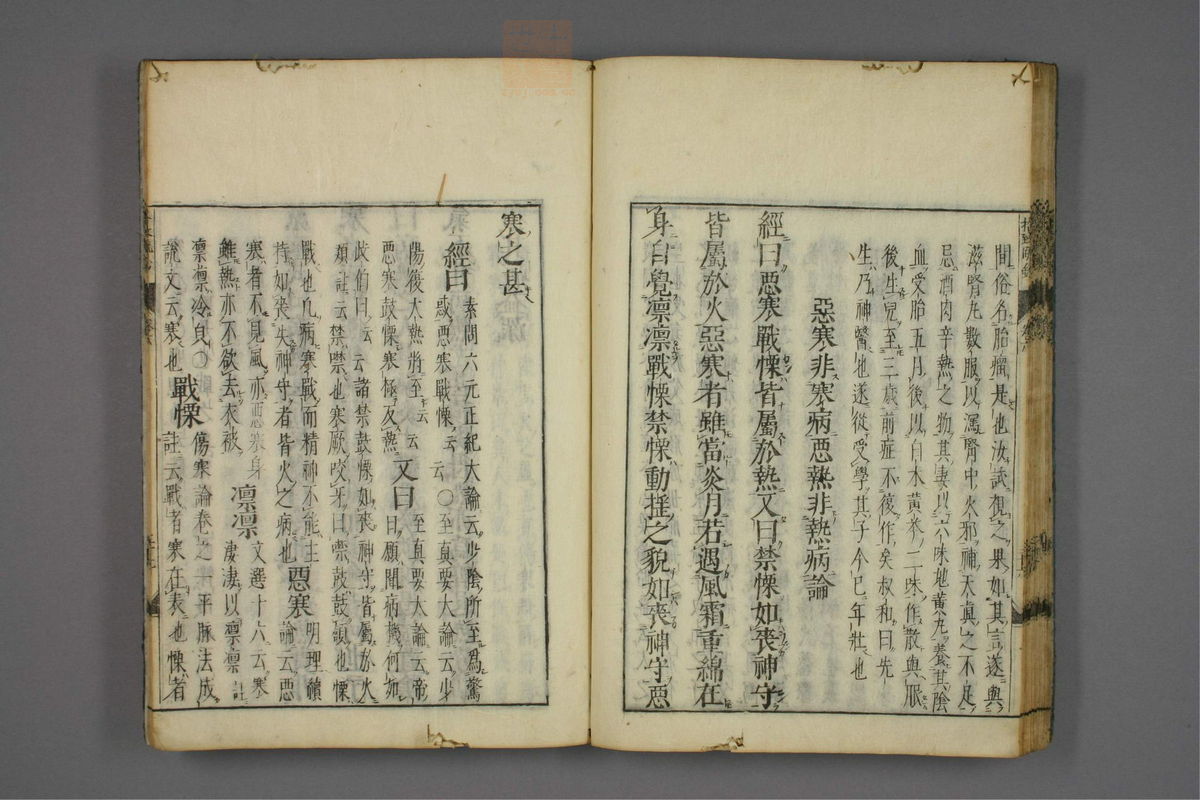 間俗名胎㿔是也汝試視之果如其言遂與
滋腎丸數服以瀉腎中火邪補天真之不足
忌酒肉辛熱之物其妻以六味地黄丸養其陰
血受胎五月後以白术黄芩二味作散與服
後生兒至三歲前症不復作矣叔和曰先
生乃神醫也遂從受學其子今已年壯也
惡寒非寒病惡熱非熱病論
經曰惡寒戰慄皆屬於熱又曰禁慄如喪神守
皆屬於火惡寒者雖當炎月若遇風霜重綿在
身自覺凛凛戰慄禁慄動揺之貌如喪神守惡
寒之甚
經曰 素問六元正紀大論云少陰所至爲驚
惑惡寒戰慄云云○至真要大論云少
陽復大熱將至云云
惡寒鼓慄寒極反熱 又曰 至真要大論云帝
曰願聞病機何如
歧伯曰云云諸禁鼓慄如喪神守皆屬於火
類註云禁噤也寒厥咬牙曰噤鼓鼓頷也慄
戰也凡病寒戰而精神不能主
持如喪失神守者皆火之病也 惡寒 明理
論云惡
寒者不見風亦惡寒身
雖熱亦不欲去衣被 凛凛 文選十六云寒
凄凄以凛凛註
凛凛冷皃○傷寒論卷之 平脉法成
說文云寒也 戰慄 註云戰者寒在表也慄者